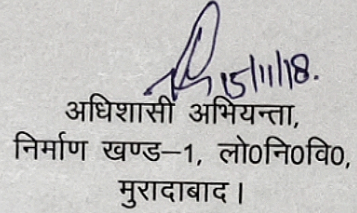 15/11/18.
अधिशासी अभियन्ता,
निर्माण खण्ड–1, लो0नि0वि0,
मुरादाबाद।